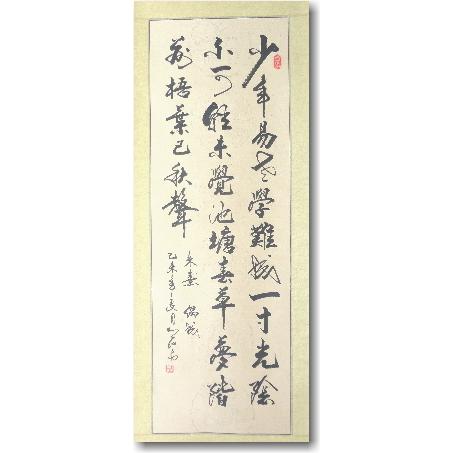 少年易老學難成一寸光陰
不可輕未覺池塘春草夢階
前梧葉已秋聲
朱熹 偶成
乙未